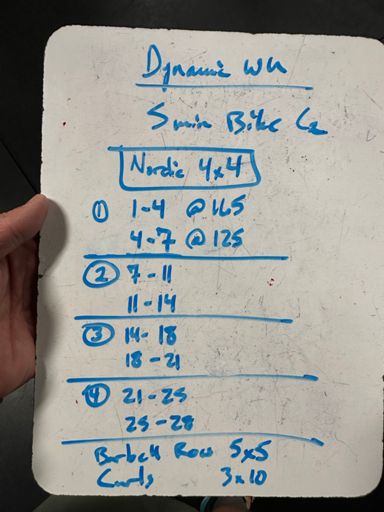 Dynamic WU
5 min Bike
Nordic 4x4
① 1-4 @ 165
4-7 @ 125
② 7-11
11-14
③ 14-18
18-21
④ 21-25
25-28
Barbell Row 5x5
Curls 3x10